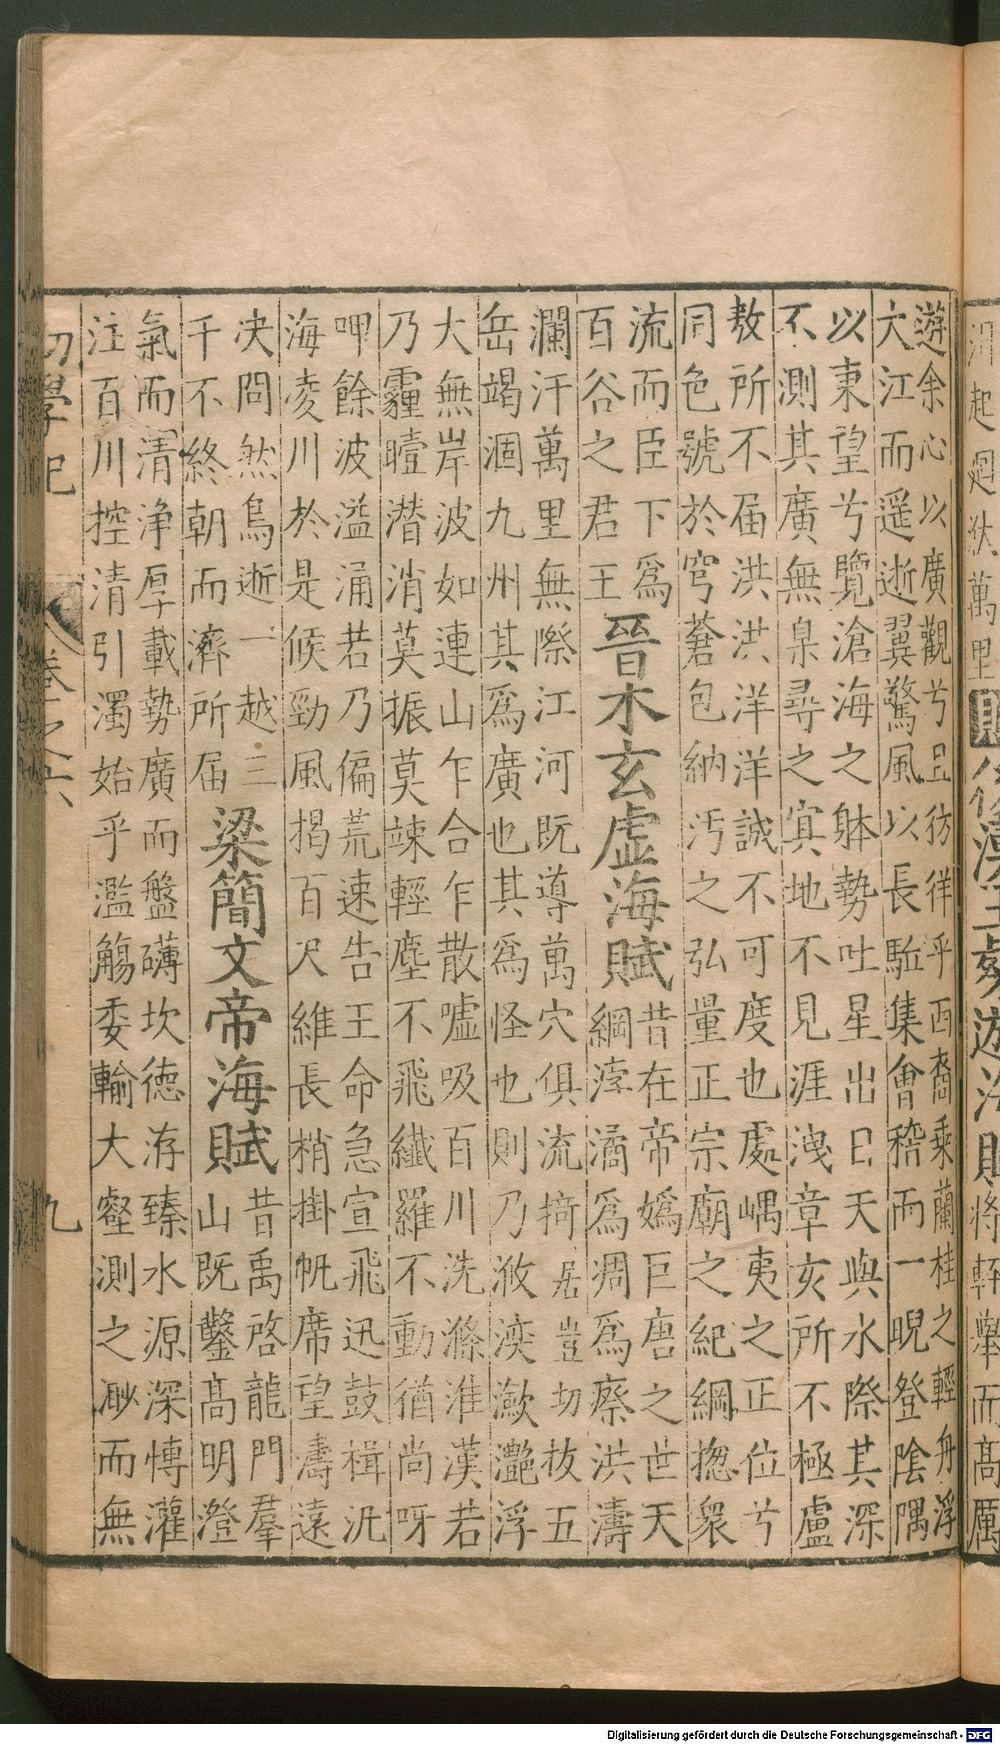 起迴狀萬里
賦
後漢王粲遊海賦
將
舉而高厲
遊余心以廣觀兮且彷徉乎西裔乗蘭桂之輕舟浮
大江而遥逝翼驚風以長駈集會稽而一睨登陰隅
以東望兮覽滄海之躰勢吐星出日天與水際其深
不測其廣無臬尋之㝠地不見涯洩章亥所不極盧
敖所不届洪洪洋洋誠不可度也處嵎夷之正位兮
同色號於穹蒼包納汚之弘量正宗廟之紀綱揔衆
流而臣下爲
百谷之君王
晉木玄虚海賦
昔在帝嬀巨唐之世天
綱浡潏爲凋爲瘵洪濤
瀾汗萬里無際江河既導萬穴俱流掎居豈切拔五
岳竭涸九州其爲廣也其爲怪也則乃浟湙瀲灔浮
大無岸波如連山乍合乍散嘘吸百川洗滌淮漢若
乃霾曀潜消莫振莫竦輕塵不飛纖羅不動猶尚呀
呷餘波溢涌若乃偏荒速告王命急宣飛迅鼓楫汎
海凌川於是候勁風揭百尺維長梢掛帆席望濤遠
决冏然鳥逝一越三
千不終朝而濟所届
梁簡文帝海賦
昔禹啓龍門羣
山既鑿髙明澄
氣而清浄厚載勢廣而盤礴坎德洊臻水源深博灌
注百川控清引濁始乎濫觴委輸大壑測之渺而無
初學記
卷之六
九
Digitalisierung gefördert durch die Deutsche Forschungsgemeinschaft - DFG